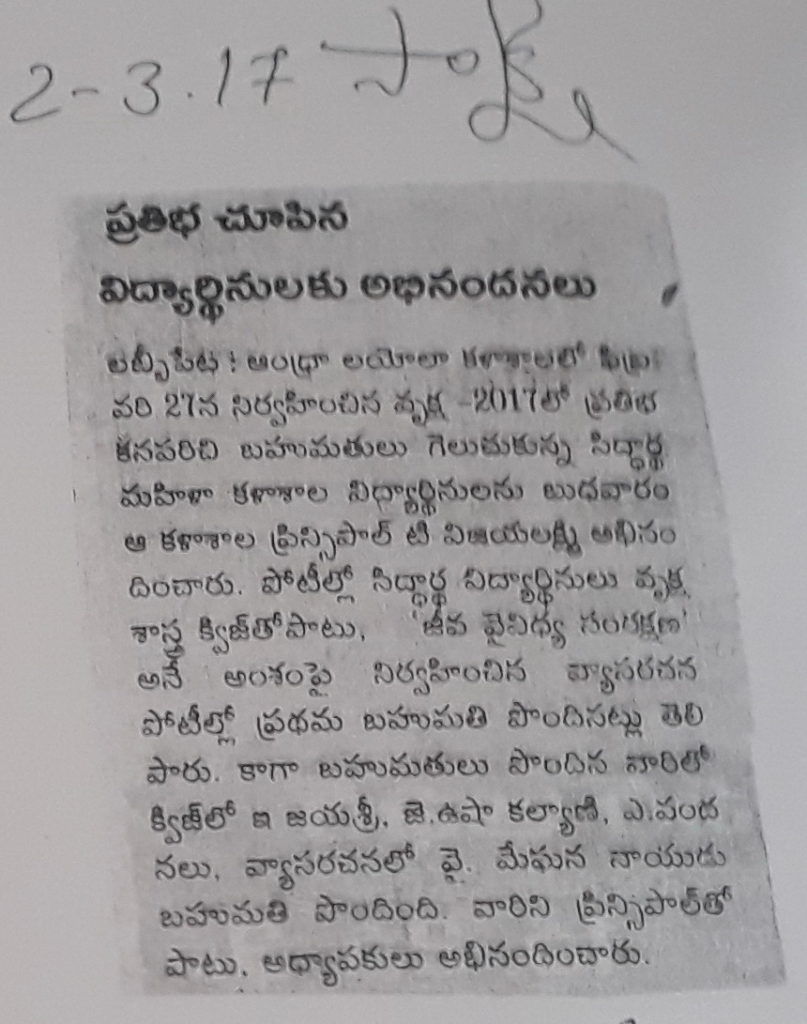 2-3.17 సాక్షి
ప్రతిభ చూపిన
విద్యార్థినులకు అభినందనలు
లబ్బీపేట : ఆంధ్రా లయోలా కళాశాలలో ఫిబ్ర
వరి 27న నిర్వహించిన వృక్ష -2017లో ప్రతిభ
కనపరిచి బహుమతులు గెలుచుకున్న సిద్ధార్థ
మహిళా కళాశాల విద్యార్థినులను బుధవారం
ఆ కళాశాల ప్రిన్సిపాల్ టి విజయలక్ష్మి అభినం
దించారు. పోటీల్లో సిద్ధార్థ విద్యార్థినులు వృక్ష
శాస్త్ర క్విజ్‌తోపాటు, 'జీవ వైవిధ్య సంరక్షణ'
అనే అంశంపై నిర్వహించిన వ్యాసరచన
పోటీల్లో ప్రథమ బహుమతి పొందినట్లు తెలి
పారు. కాగా బహుమతులు పొందిన వారిలో
క్విజ్‌లో ఇ జయశ్రీ, జె.ఉషా కల్యాణి, ఎ.వంద
నలు, వ్యాసరచనలో వై. మేఘన నాయుడు
బహుమతి పొందింది. వారిని ప్రిన్సిపాల్‌తో
పాటు, అధ్యాపకులు అభినందించారు.